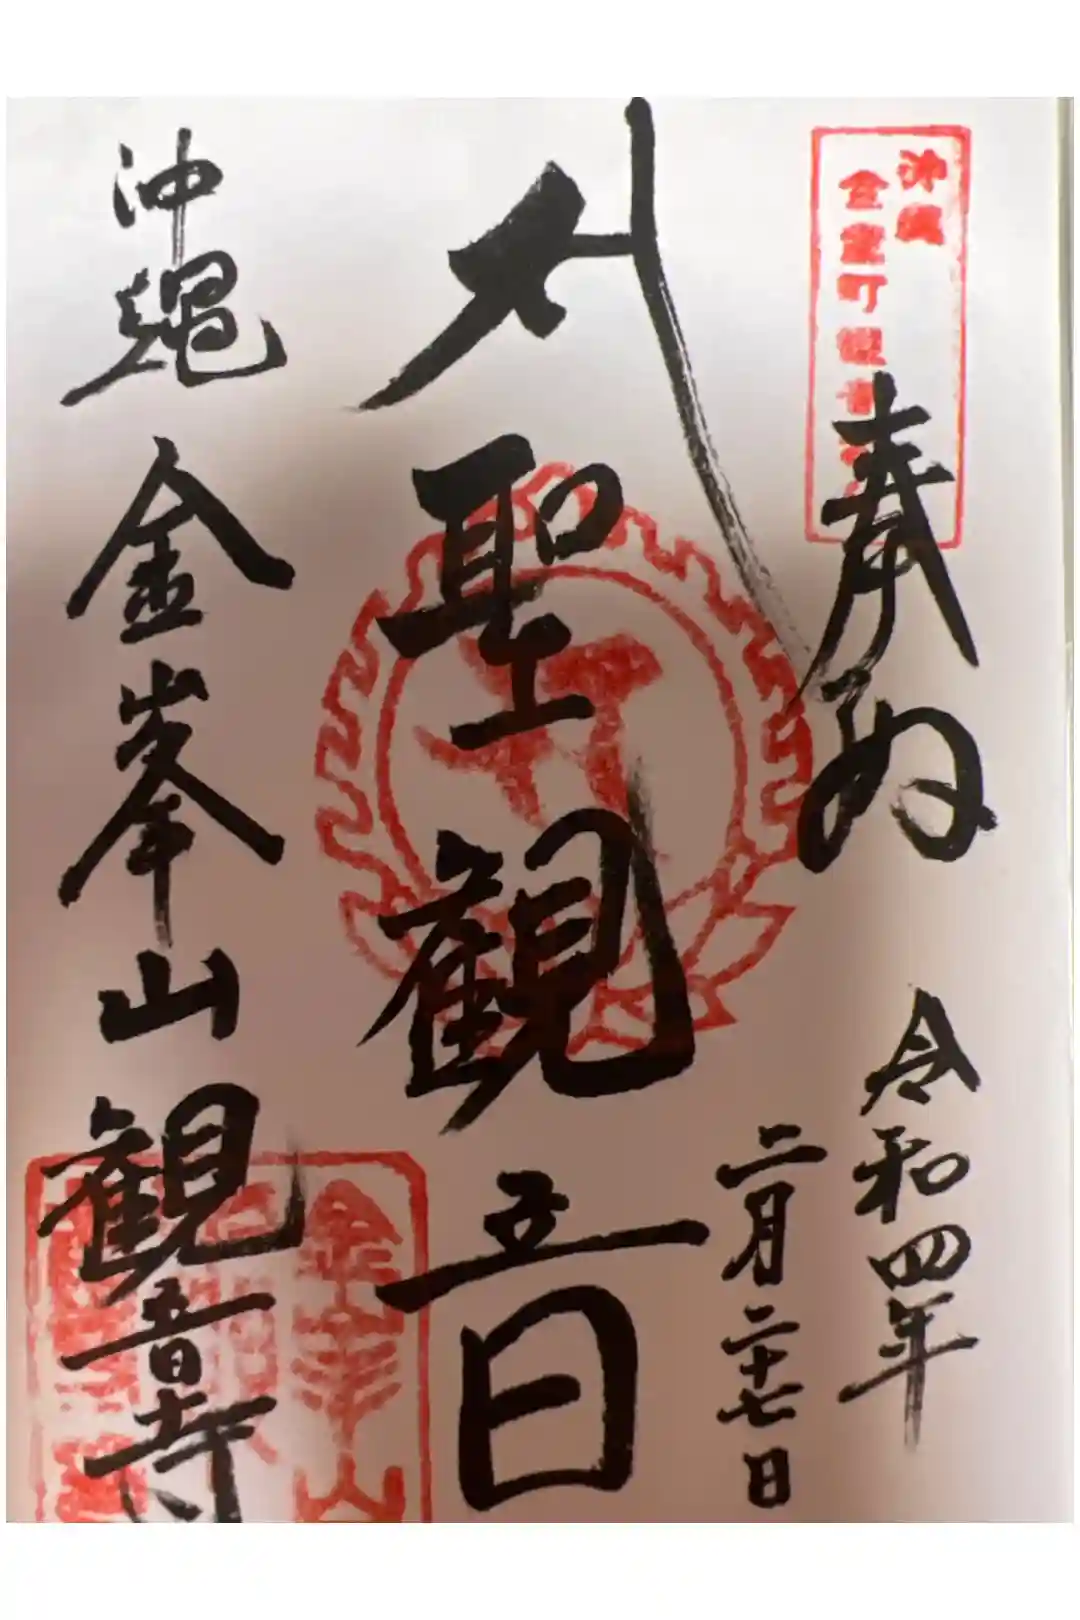 沖縄
金武町観音
奉拝
令和四年
二月二十七日
聖観音
沖縄
金峯山
観音寺
金峯山